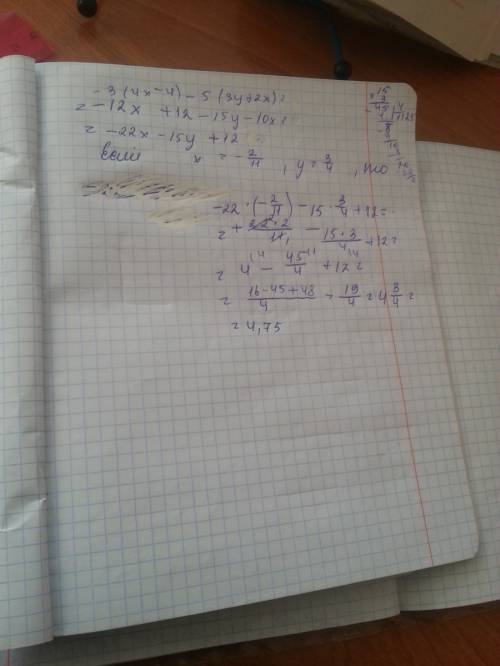 -3(4x-4) - 5(3y+2x)=
= -12x + 12 - 15y - 10x =
= -22x - 15y + 12
если x = -2/11, y = 3/4, то
-22·(-2/11) - 15·3/4 + 12 =
= + 22·2/11 - 15·3/4 + 12 =
= 4 - 45/4 + 12 =
= 16-45+48/4 = 19/4 = 4 3/4 =
= 4,75